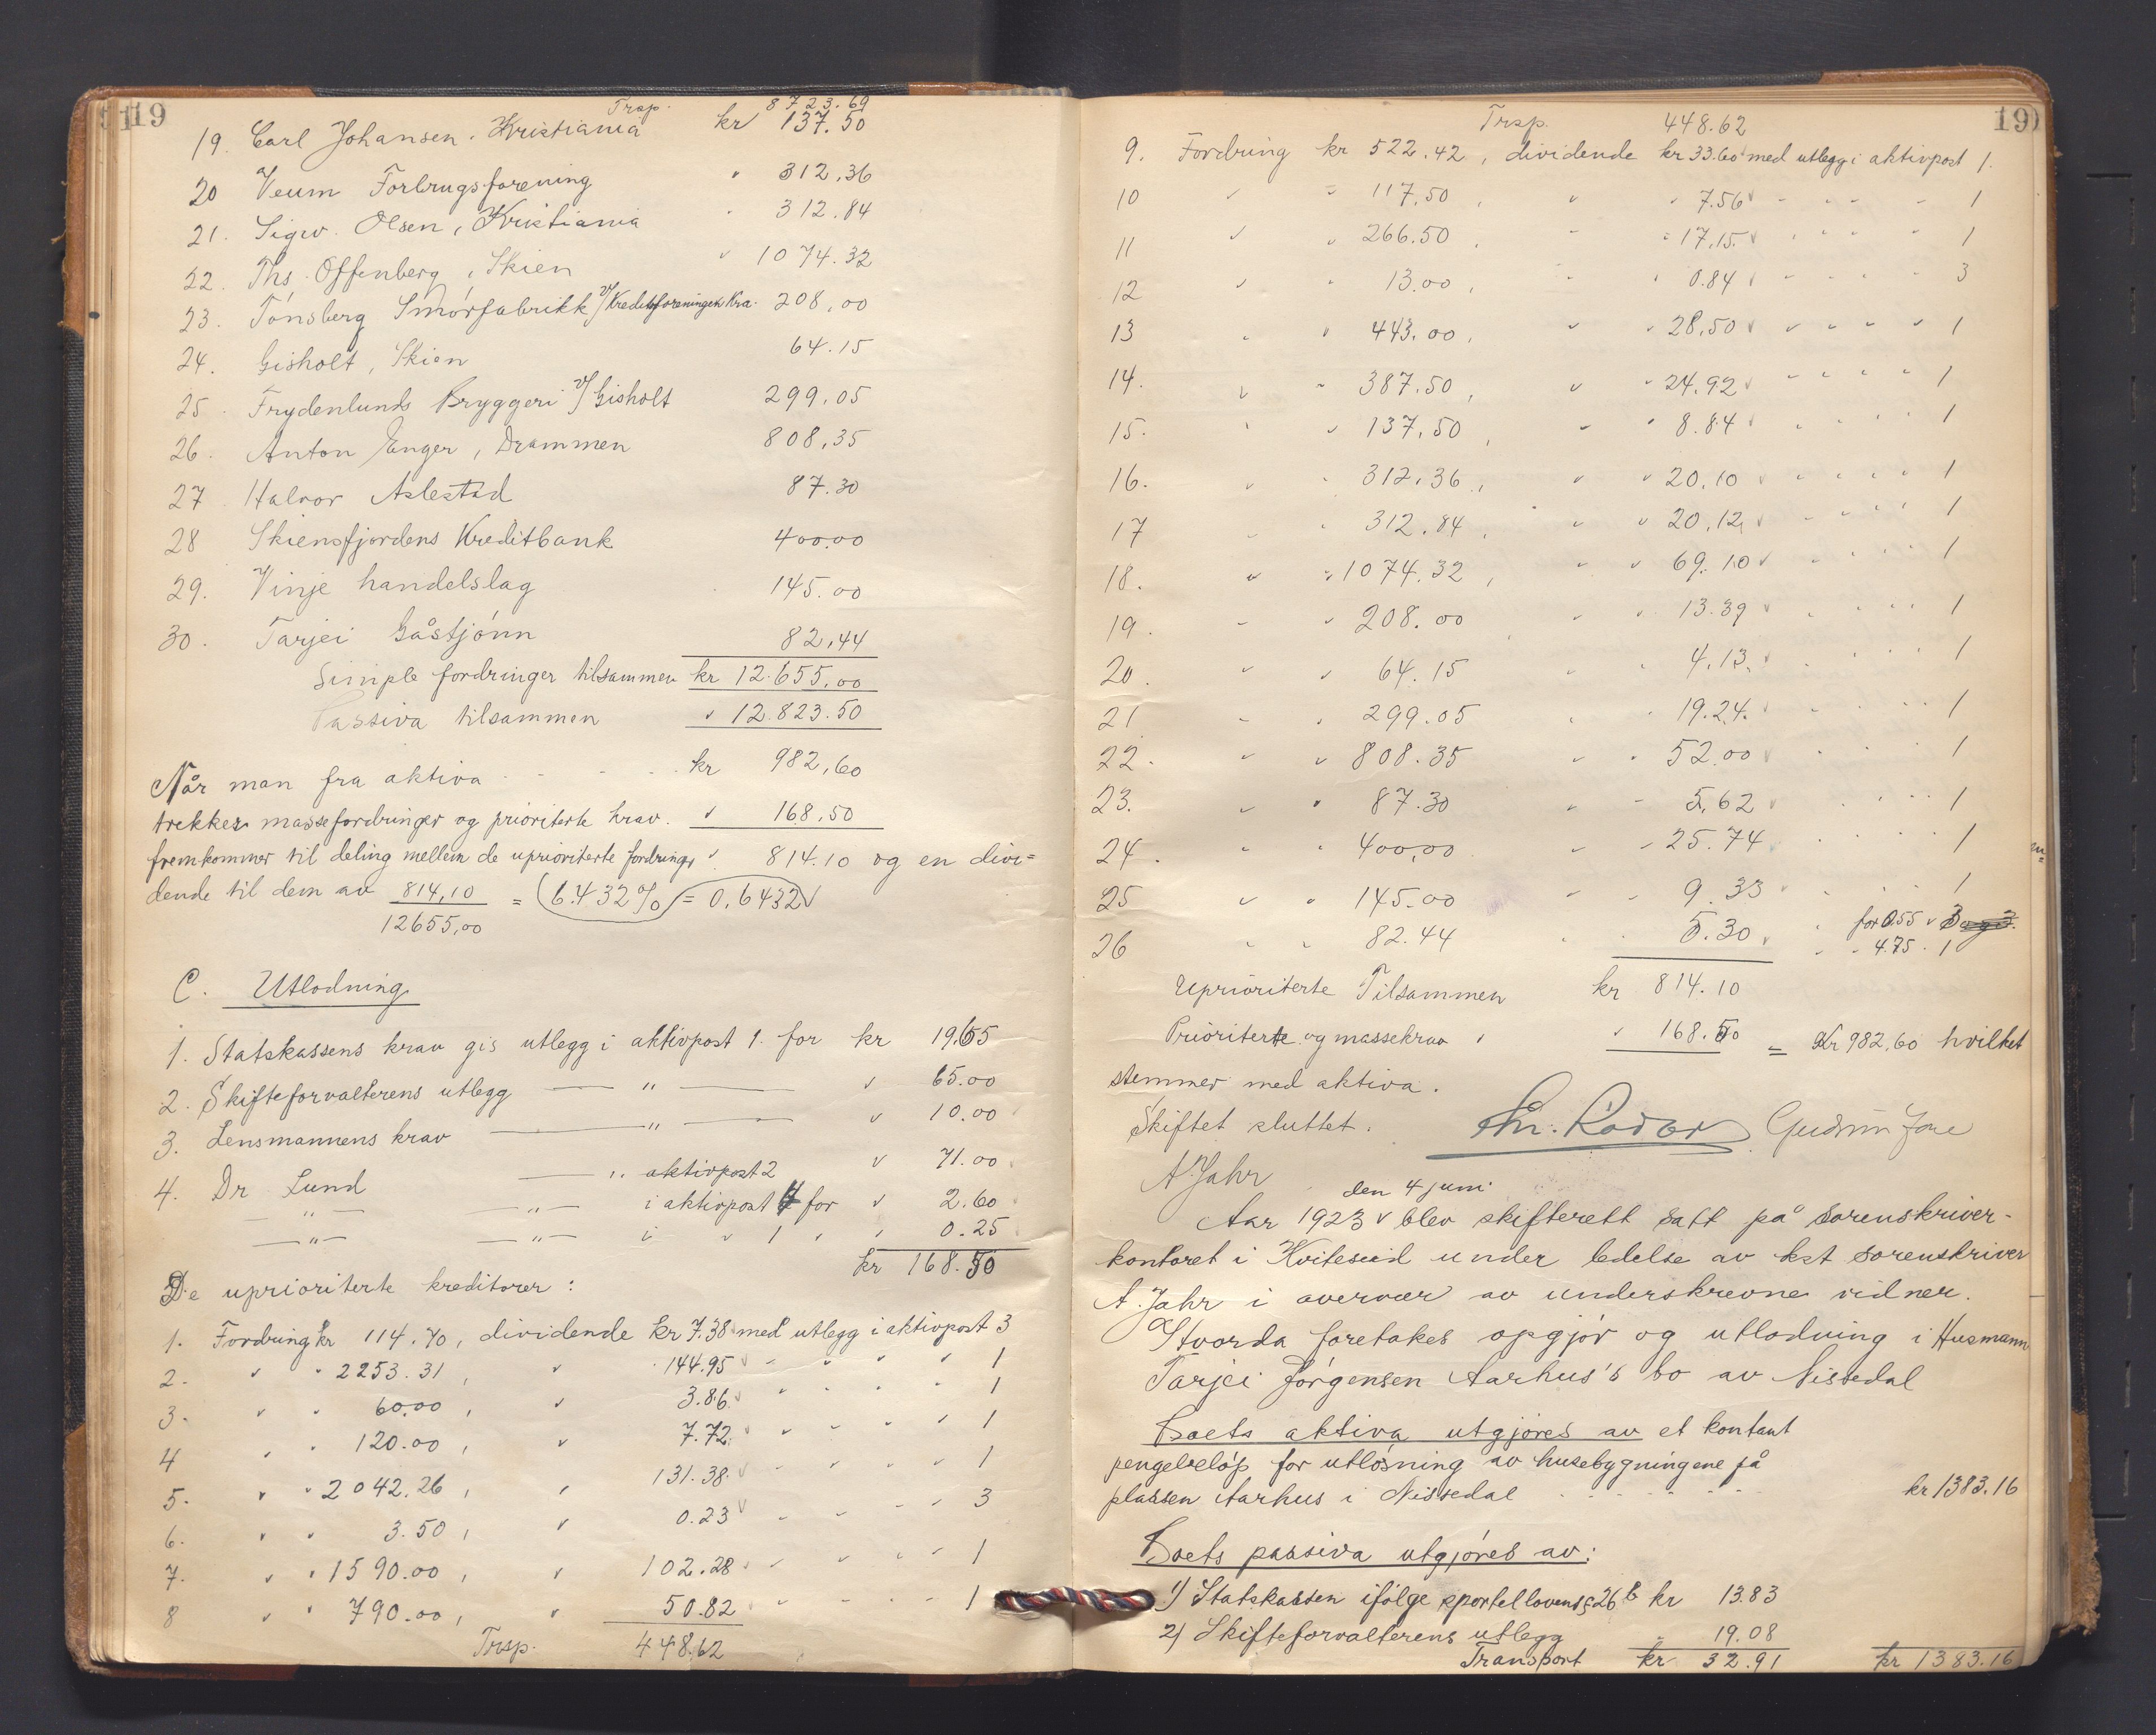 19
Trsp. 8723.69
19. Carl Johansen. Kristiania kr 137.50
20 Veum Forbrugsforening " 312.36
21. Sigw. Olsen, Kristiania " 312.84
22. Ths. Offenberg, Skien " 1074.32
23. Tønsberg Smørfabrikk v/Kreditforeningen Kra. 208.00
24. Gisholt, Skien 64.15
25. Frydenlunds Bryggeri v/Gisholt 299.05
26. Anton Enger, Drammen 808.35
27 Halvor Aslestad 87.30
28 Skiensfjordens Kreditbank 400.00
29. Vinje handelslag 145.00
30. Tarjei Gåstjønn 82.44
Simple fordringer tilsammen kr 12.655.00
Passiva tilsammen " 12.823.50
Når man fra aktiva - - - - kr 982,60
trekker massefordringer og prioriterte krav. " 168,50
fremkommer til deling mellem de uprioriterte fordringer " 814.10 og en divi=
dende til dem av 814,10 / 12655,00 = 6.432 % = 0,6432
C. Utlodning
1. Statskassens krav gis utlegg i aktivpost 1. for kr 19.65
2. Skifteforvalterens utlegg — " — " 65.00
3. Lensmannens krav — " — " 10.00
4. Dr Lund — " aktivpost 2 " 71.00
— " — — " — i aktivpost 4 for " 2.60
— " — — " — i " 1 " " 0.25
kr 168.50
De uprioriterte kreditorer:
1. Fordring kr 114.70, dividende kr 7.38 med utlegg i aktivpost 3
2. " " 2253.31, " " 144.95 " " " " 1
3. " " 60.00, " 3.86 " " " " 1
4 " " 120.00, " 7.72 " " " " 1
5. " " 2042.26, " 131.38 " " " " 1
6. " " 3.50, " 0.23 " " " " 3
7. " " 1590.00, " 102.28 " " " " 1
8 " " 790.00, " 50.82 " " " " 1
Trsp. 448.62
19
Trsp. 448.62
9. Fordring kr 522.42, dividende kr 33.60 med utlegg i aktivpost 1.
10 " " 117.50, " " 7.56 " " " " 1
11 " " 266.50, " " 17.15 " " " " 1
12 " " 13.00, " " 0.84 " " " " 3
13 " " 443.00, " " 28.50 " " " " 1
14. " " 387.50, " " 24.92 " " " " 1
15. " " 137.50, " " 8.84 " " " " 1
16. " " 312.36, " " 20.10 " " " " 1
17 " " 312.84, " " 20.12 " " " " 1
18. " " 1074.32, " " 69.10 " " " " 1
19. " " 208.00 " " 13.39 " " " " 1
20. " " 64.15 " " 4.13. " " " " 1
21 " " 299.05 " " 19.24. " " " " 1
22. " " 808.35 " " 52.00 " " " " 1
23. " " 87.30 " " 5.62 " " " " 1
24. " " 400.00 " " 25.74 " " " " 1
25 " " 145.00 " " 9.33 " " " " 1
26 " " 82.44 " " 5.30 " for 0.55 " 3
" " 4.75 " 1
Uprioriterte Tilsammen kr 814.10
Prioriterte og massekrav " " 168.50 = Kr 982.60 hvilket
stemmer med aktiva.
Skiftet sluttet.
A. Jahr
Aar 1923 den 4 juni blev skifterett satt på sorenskriver-
kontoret i Kviteseid under ledelse av kst sorenskriver
A. Jahr i overvær av underskrevne vidner.
Hvorda foretakes opgjør og utlodning i Husmann
Tarjei Jørgensen Aarhus's bo av Nissedal
Boets aktiva utgjøres av et kontant
pengebeløp for utløsning av husebygningene på
plassen Aarhus i Nissedal - - - - - kr 1383.16
Boets passiva utgjøres av:
1) Statskassen ifølge sportellovens § 26 b kr 13.83
2) Skifteforvalterens utlegg " 19.08
Transport kr 32.91 kr 1383.16